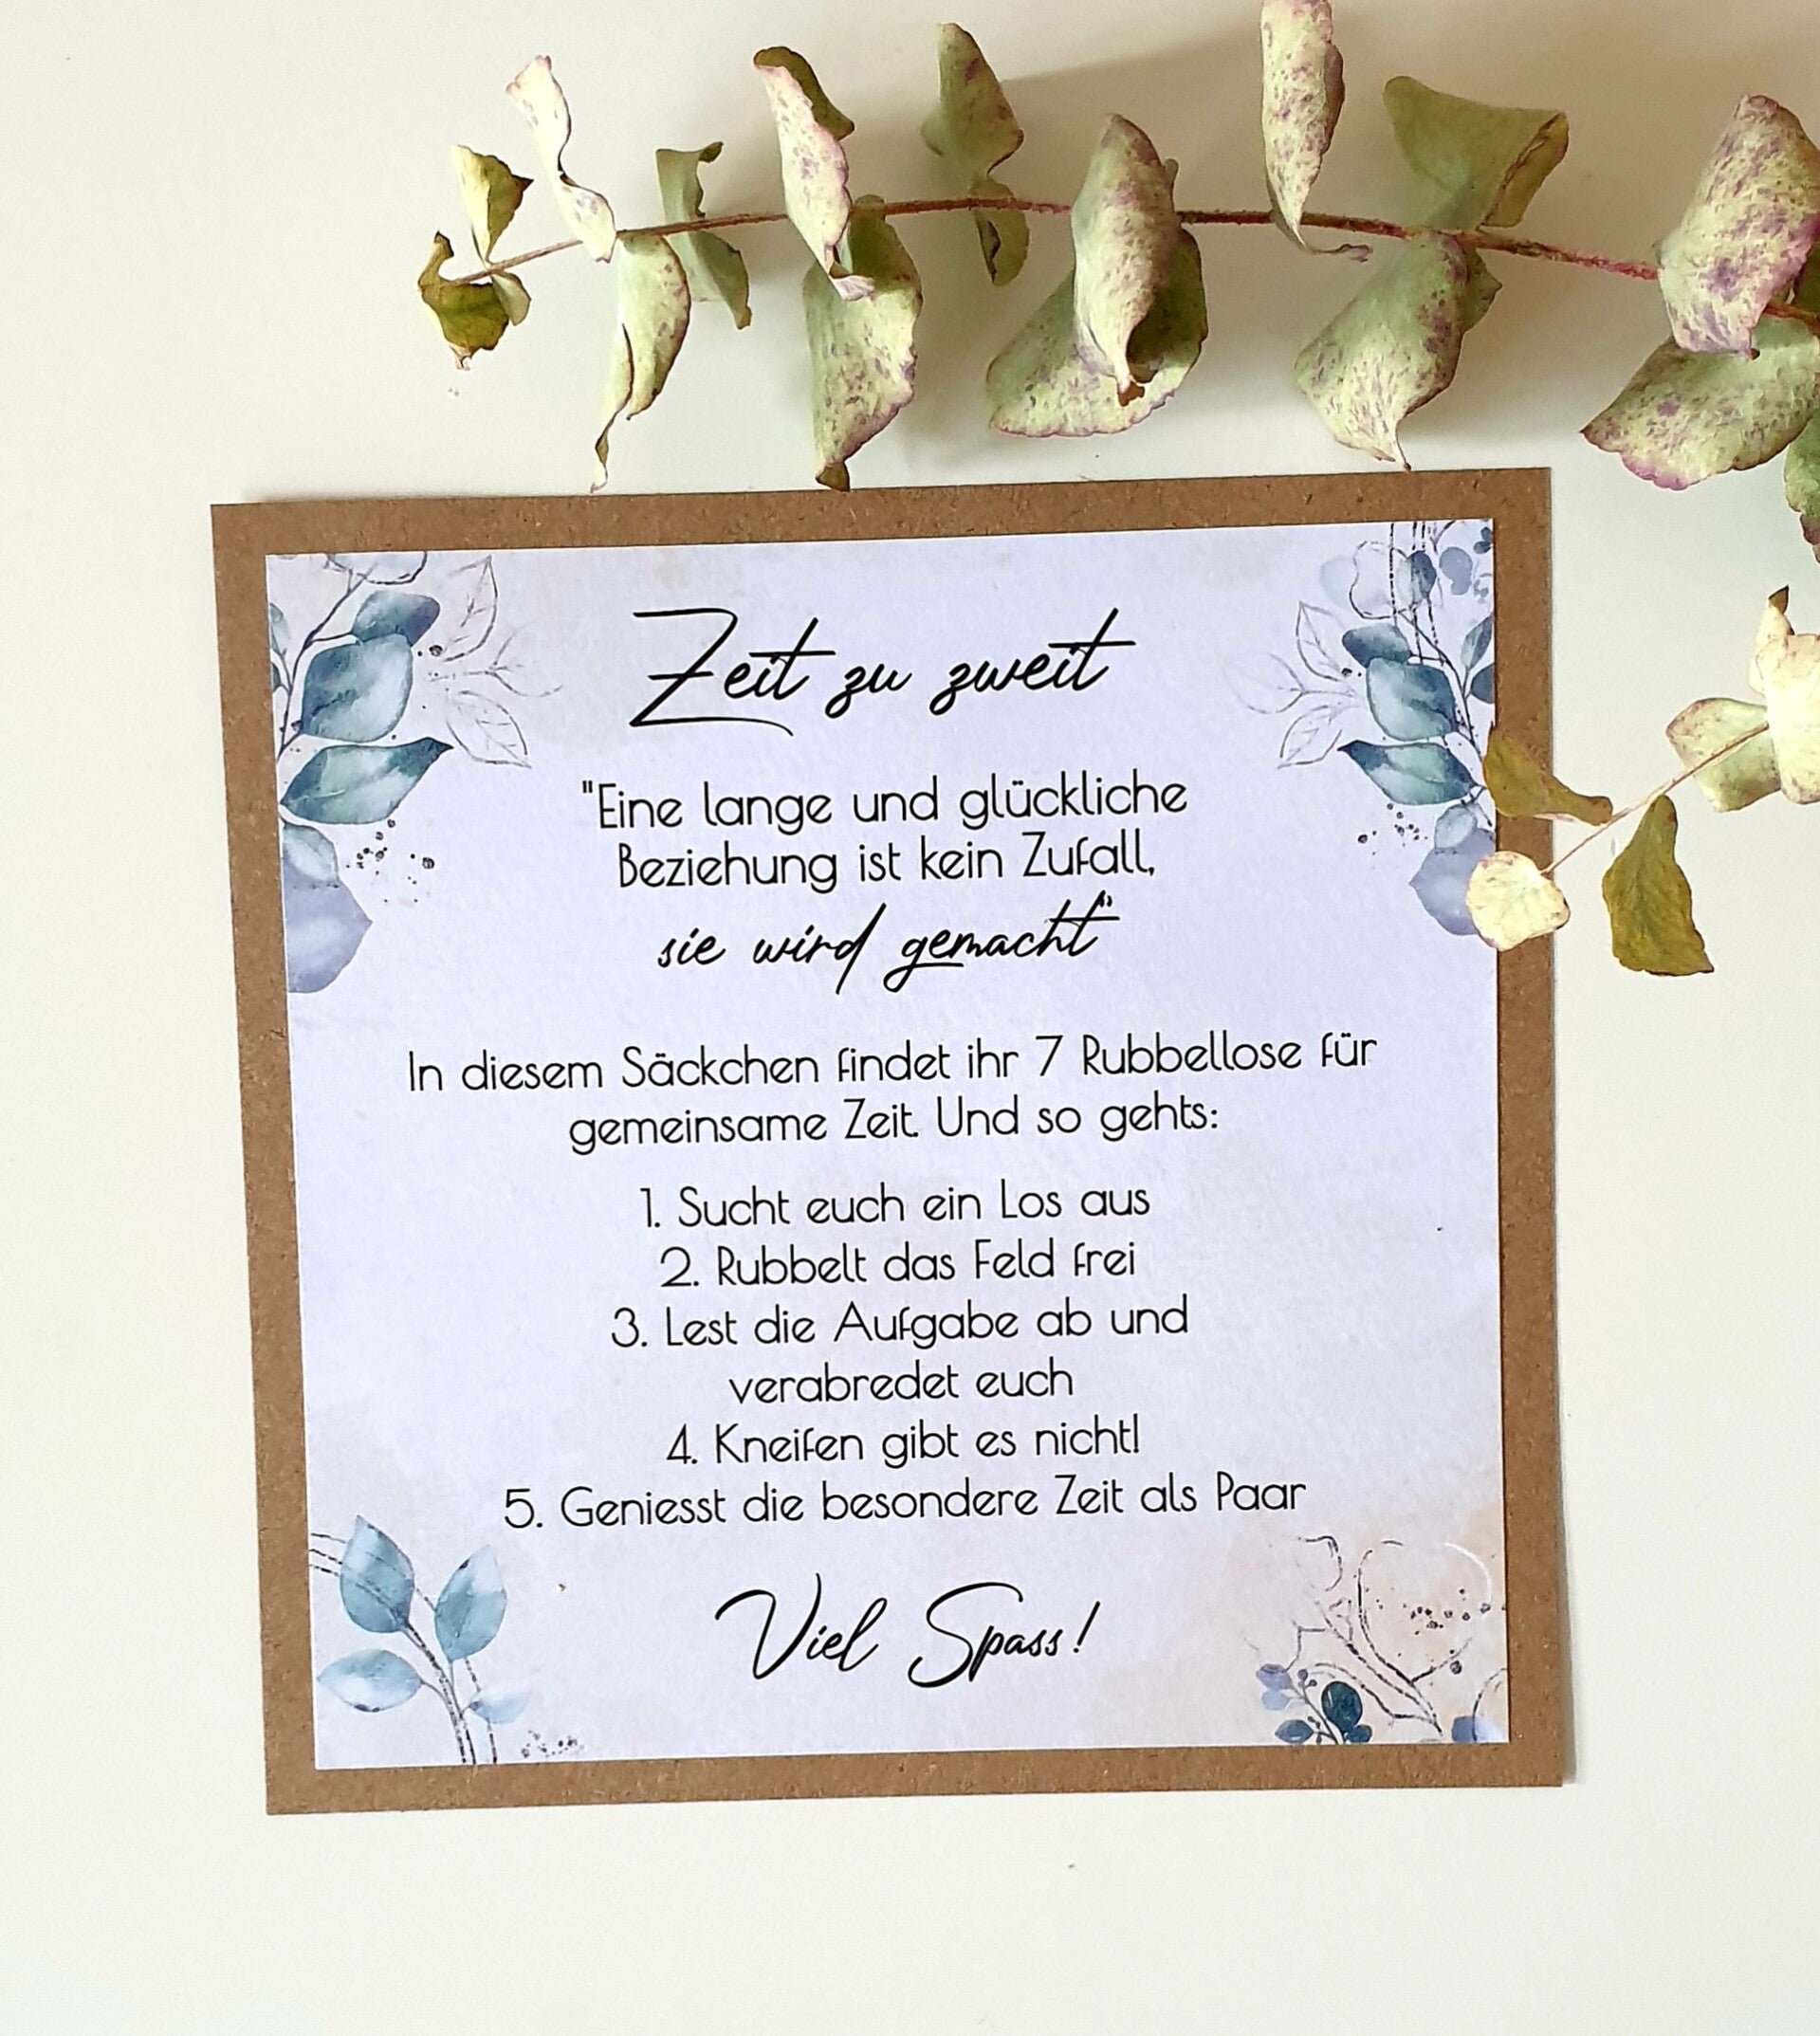 Zeit zu zweit
"Eine lange und glückliche
Beziehung ist kein Zufall,
sie wird gemacht"
In diesem Säckchen findet ihr 7 Rubbellose für
gemeinsame Zeit. Und so gehts:
1. Sucht euch ein Los aus
2. Rubbelt das Feld frei
3. Lest die Aufgabe ab und
verabredet euch
4. Kneifen gibt es nicht!
5. Geniesst die besondere Zeit als Paar
Viel Spass!